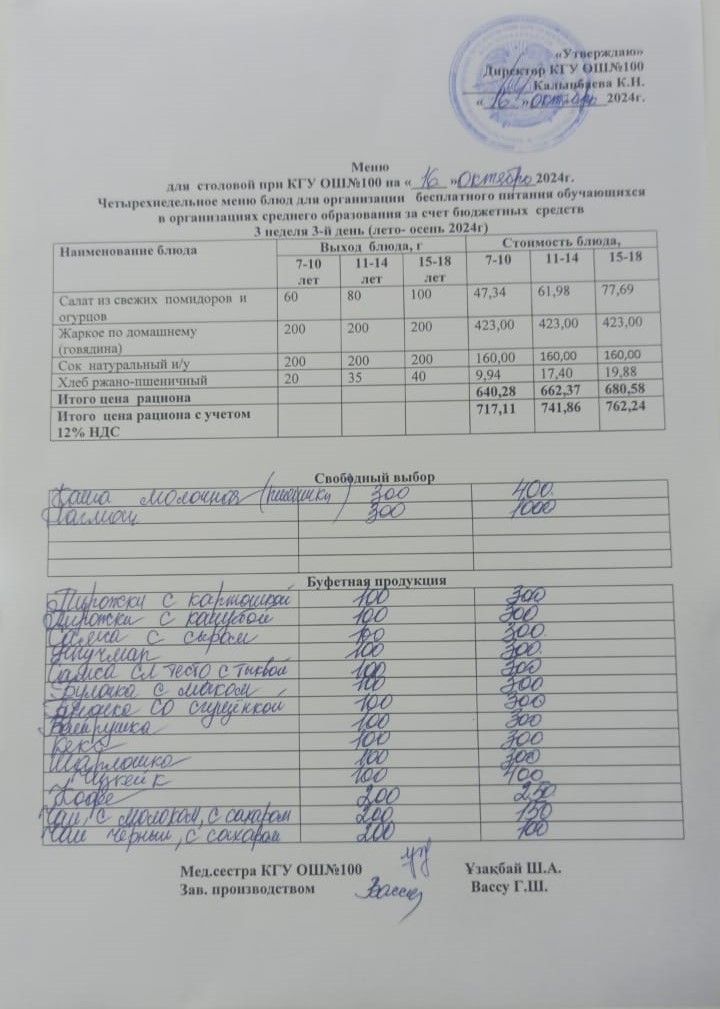 «Утверждаю»
Директор КГУ ОШ№100
Калыбаева К.Н.
« 16 » октября 2024г.
Меню
для столовой при КГУ ОШ№100 на « 16 » октября 2024г.
Четырехнедельное меню блюд для организации бесплатного питания обучающихся
в организациях среднего образования за счет бюджетных средств
3 неделя 3-й день (лето- осень 2024г)
Наименование блюда Выход блюда, г Стоимость блюда,
7-10 лет 11-14 лет 15-18 лет 7-10 11-14 15-18
Салат из свежих помидоров и огурцов 60 80 100 47,34 61,98 77,69
Жаркое по домашнему (говядина) 200 200 200 423,00 423,00 423,00
Сок натуральный и/у 200 200 200 160,00 160,00 160,00
Хлеб ржано-пшеничный 20 35 40 9,94 17,40 19,88
Итого цена рациона 640,28 662,37 680,58
Итого цена рациона с учетом 12% НДС 717,11 741,86 762,24
Свободный выбор
Каша молочная 300 400
300 1000
Буфетная продукция
Пирожки с картошкой 100 300
Пирожки с капустой 100 300
Самса с сыром 100 300
100 300
Самса сл тесто с тыквой 100 300
Булочка с маком 100 300
Булочка со сгущёнкой 100 300
Ватрушка 100 300
Кекс 100 300
Шарлотка 100 300
Чизкейк 100 400
Кофе 200 250
Чай с молоком, с сахаром 200 150
Чай чёрный, с сахаром 200 100
Мед.сестра КГУ ОШ№100 Ұзақбай Ш.А.
Зав. производством Вассу Г.Ш.